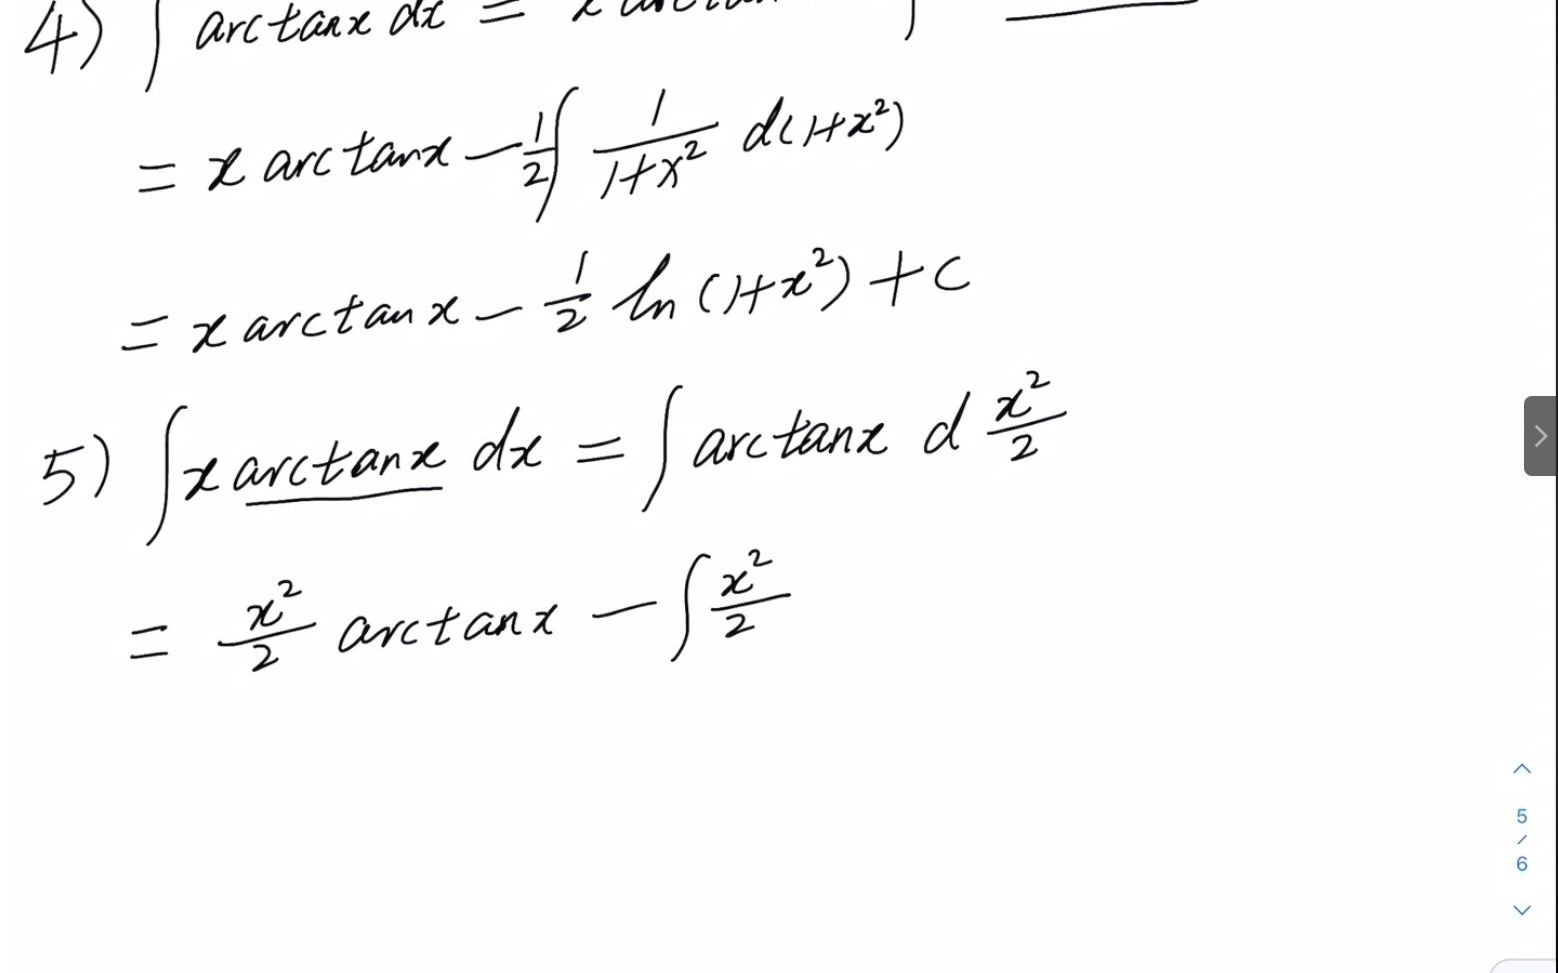 4) ∫ arctanx dx = x arctan ∫
= x arctanx - 1/2 ∫ 1/(1+x²) d(1+x²)
= x arctanx - 1/2 ln(1+x²) + C
5) ∫ x arctanx dx = ∫ arctanx d x²/2
= x²/2 arctanx - ∫ x²/2
5
/
6